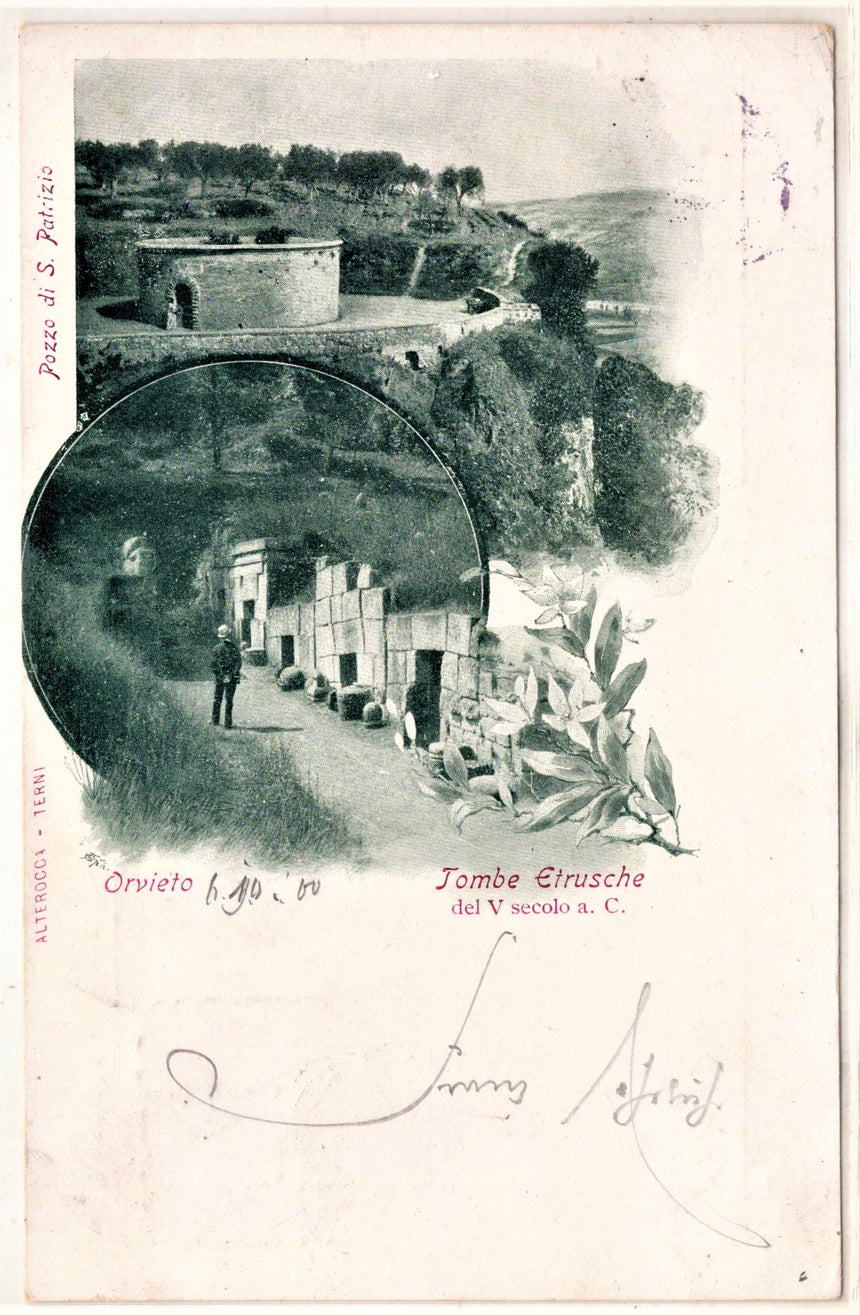 Pozzo di S. Patrizio
ALTEROCCA - TERNI
Orvieto 6.10.00
Tombe Etrusche
del V secolo a. C.
Franz